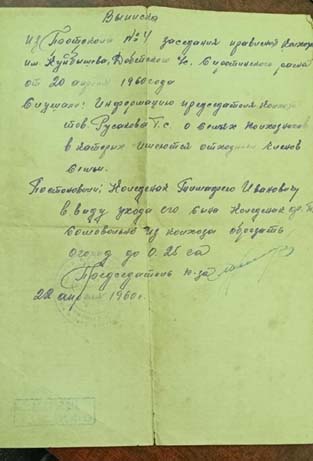 Выписка
Из Протокола № 4 заседания правления Колхоза
им. Куйбышева, Советского с/с.
от 20 апреля 1960 года
Слушали: Информацию председателя Колхоза
тов. Русакова Г.С. о семьях колхозников
в которых имеются отходники членов
семьи.
Постановили: Ивановичу
в виду ухода его сына
самовольно из колхоза обрезать
огород до 0.25 га
Председатель к-за
22 апреля 1960 г.